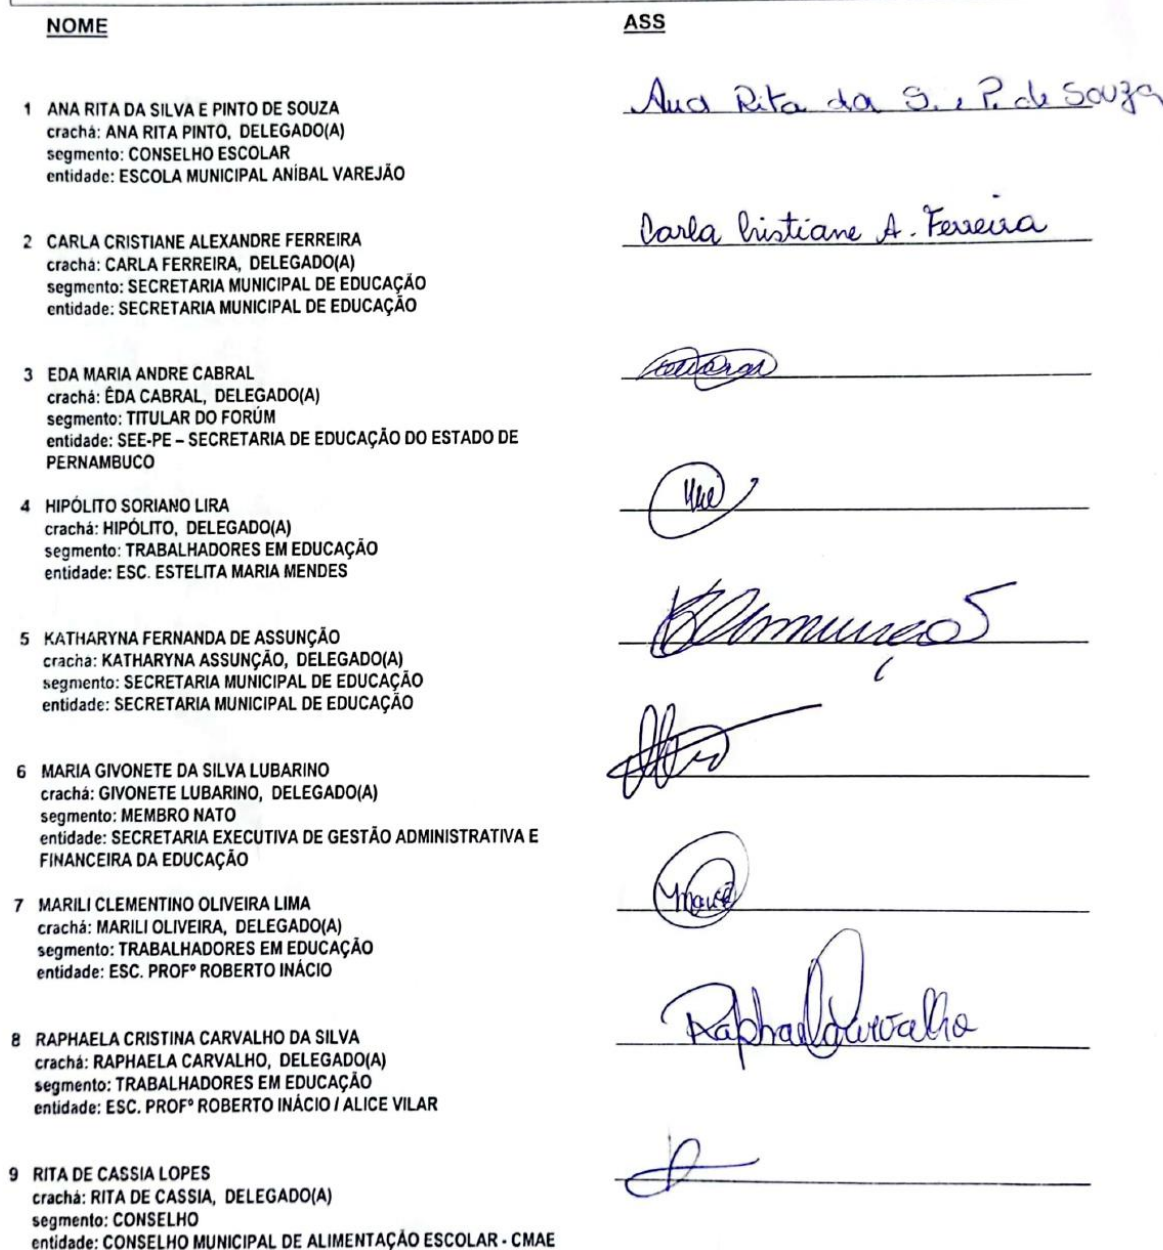 NOME
ASS
1 ANA RITA DA SILVA E PINTO DE SOUZA
crachá: ANA RITA PINTO, DELEGADO(A)
segmento: CONSELHO ESCOLAR
entidade: ESCOLA MUNICIPAL ANÍBAL VAREJÃO
Ana Rita da S. e P. de Souza
2 CARLA CRISTIANE ALEXANDRE FERREIRA
crachá: CARLA FERREIRA, DELEGADO(A)
segmento: SECRETARIA MUNICIPAL DE EDUCAÇÃO
entidade: SECRETARIA MUNICIPAL DE EDUCAÇÃO
Carla Cristiane A. Ferreira
3 EDA MARIA ANDRE CABRAL
crachá: ÊDA CABRAL, DELEGADO(A)
segmento: TITULAR DO FORÚM
entidade: SEE-PE – SECRETARIA DE EDUCAÇÃO DO ESTADO DE
PERNAMBUCO
4 HIPÓLITO SORIANO LIRA
crachá: HIPÓLITO, DELEGADO(A)
segmento: TRABALHADORES EM EDUCAÇÃO
entidade: ESC. ESTELITA MARIA MENDES
5 KATHARYNA FERNANDA DE ASSUNÇÃO
crachá: KATHARYNA ASSUNÇÃO, DELEGADO(A)
segmento: SECRETARIA MUNICIPAL DE EDUCAÇÃO
entidade: SECRETARIA MUNICIPAL DE EDUCAÇÃO
6 MARIA GIVONETE DA SILVA LUBARINO
crachá: GIVONETE LUBARINO, DELEGADO(A)
segmento: MEMBRO NATO
entidade: SECRETARIA EXECUTIVA DE GESTÃO ADMINISTRATIVA E
FINANCEIRA DA EDUCAÇÃO
7 MARILI CLEMENTINO OLIVEIRA LIMA
crachá: MARILI OLIVEIRA, DELEGADO(A)
segmento: TRABALHADORES EM EDUCAÇÃO
entidade: ESC. PROFº ROBERTO INÁCIO
8 RAPHAELA CRISTINA CARVALHO DA SILVA
crachá: RAPHAELA CARVALHO, DELEGADO(A)
segmento: TRABALHADORES EM EDUCAÇÃO
entidade: ESC. PROFº ROBERTO INÁCIO / ALICE VILAR
Raphaela Carvalho
9 RITA DE CASSIA LOPES
crachá: RITA DE CASSIA, DELEGADO(A)
segmento: CONSELHO
entidade: CONSELHO MUNICIPAL DE ALIMENTAÇÃO ESCOLAR - CMAE